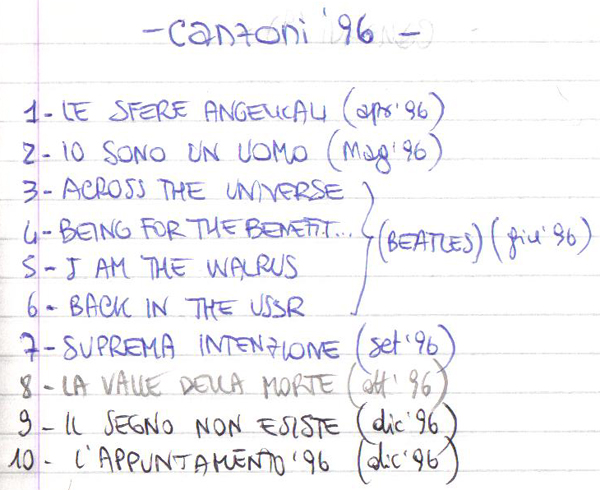 - canzoni '96 -
1 - LE SFERE ANGELICALI (apr '96)
2 - IO SONO UN UOMO (Mag '96)
3 - ACROSS THE UNIVERSE
4 - BEING FOR THE BENEFIT...
(BEATLES) (giu '96)
5 - I AM THE WALRUS
6 - BACK IN THE USSR
7 - SUPREMA INTENZIONE (set '96)
8 - LA VALLE DELLA MORTE (ott '96)
9 - IL SEGNO NON ESISTE (dic '96)
10 - L'APPUNTAMENTO '96 (dic '96)